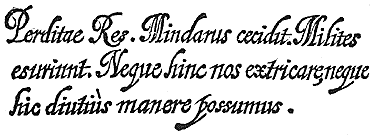 Perditae Res. Mindarus cecidit. Milites
esuriunt. Neque hinc nos extricare, neque
hic diutiùs manere possumus.